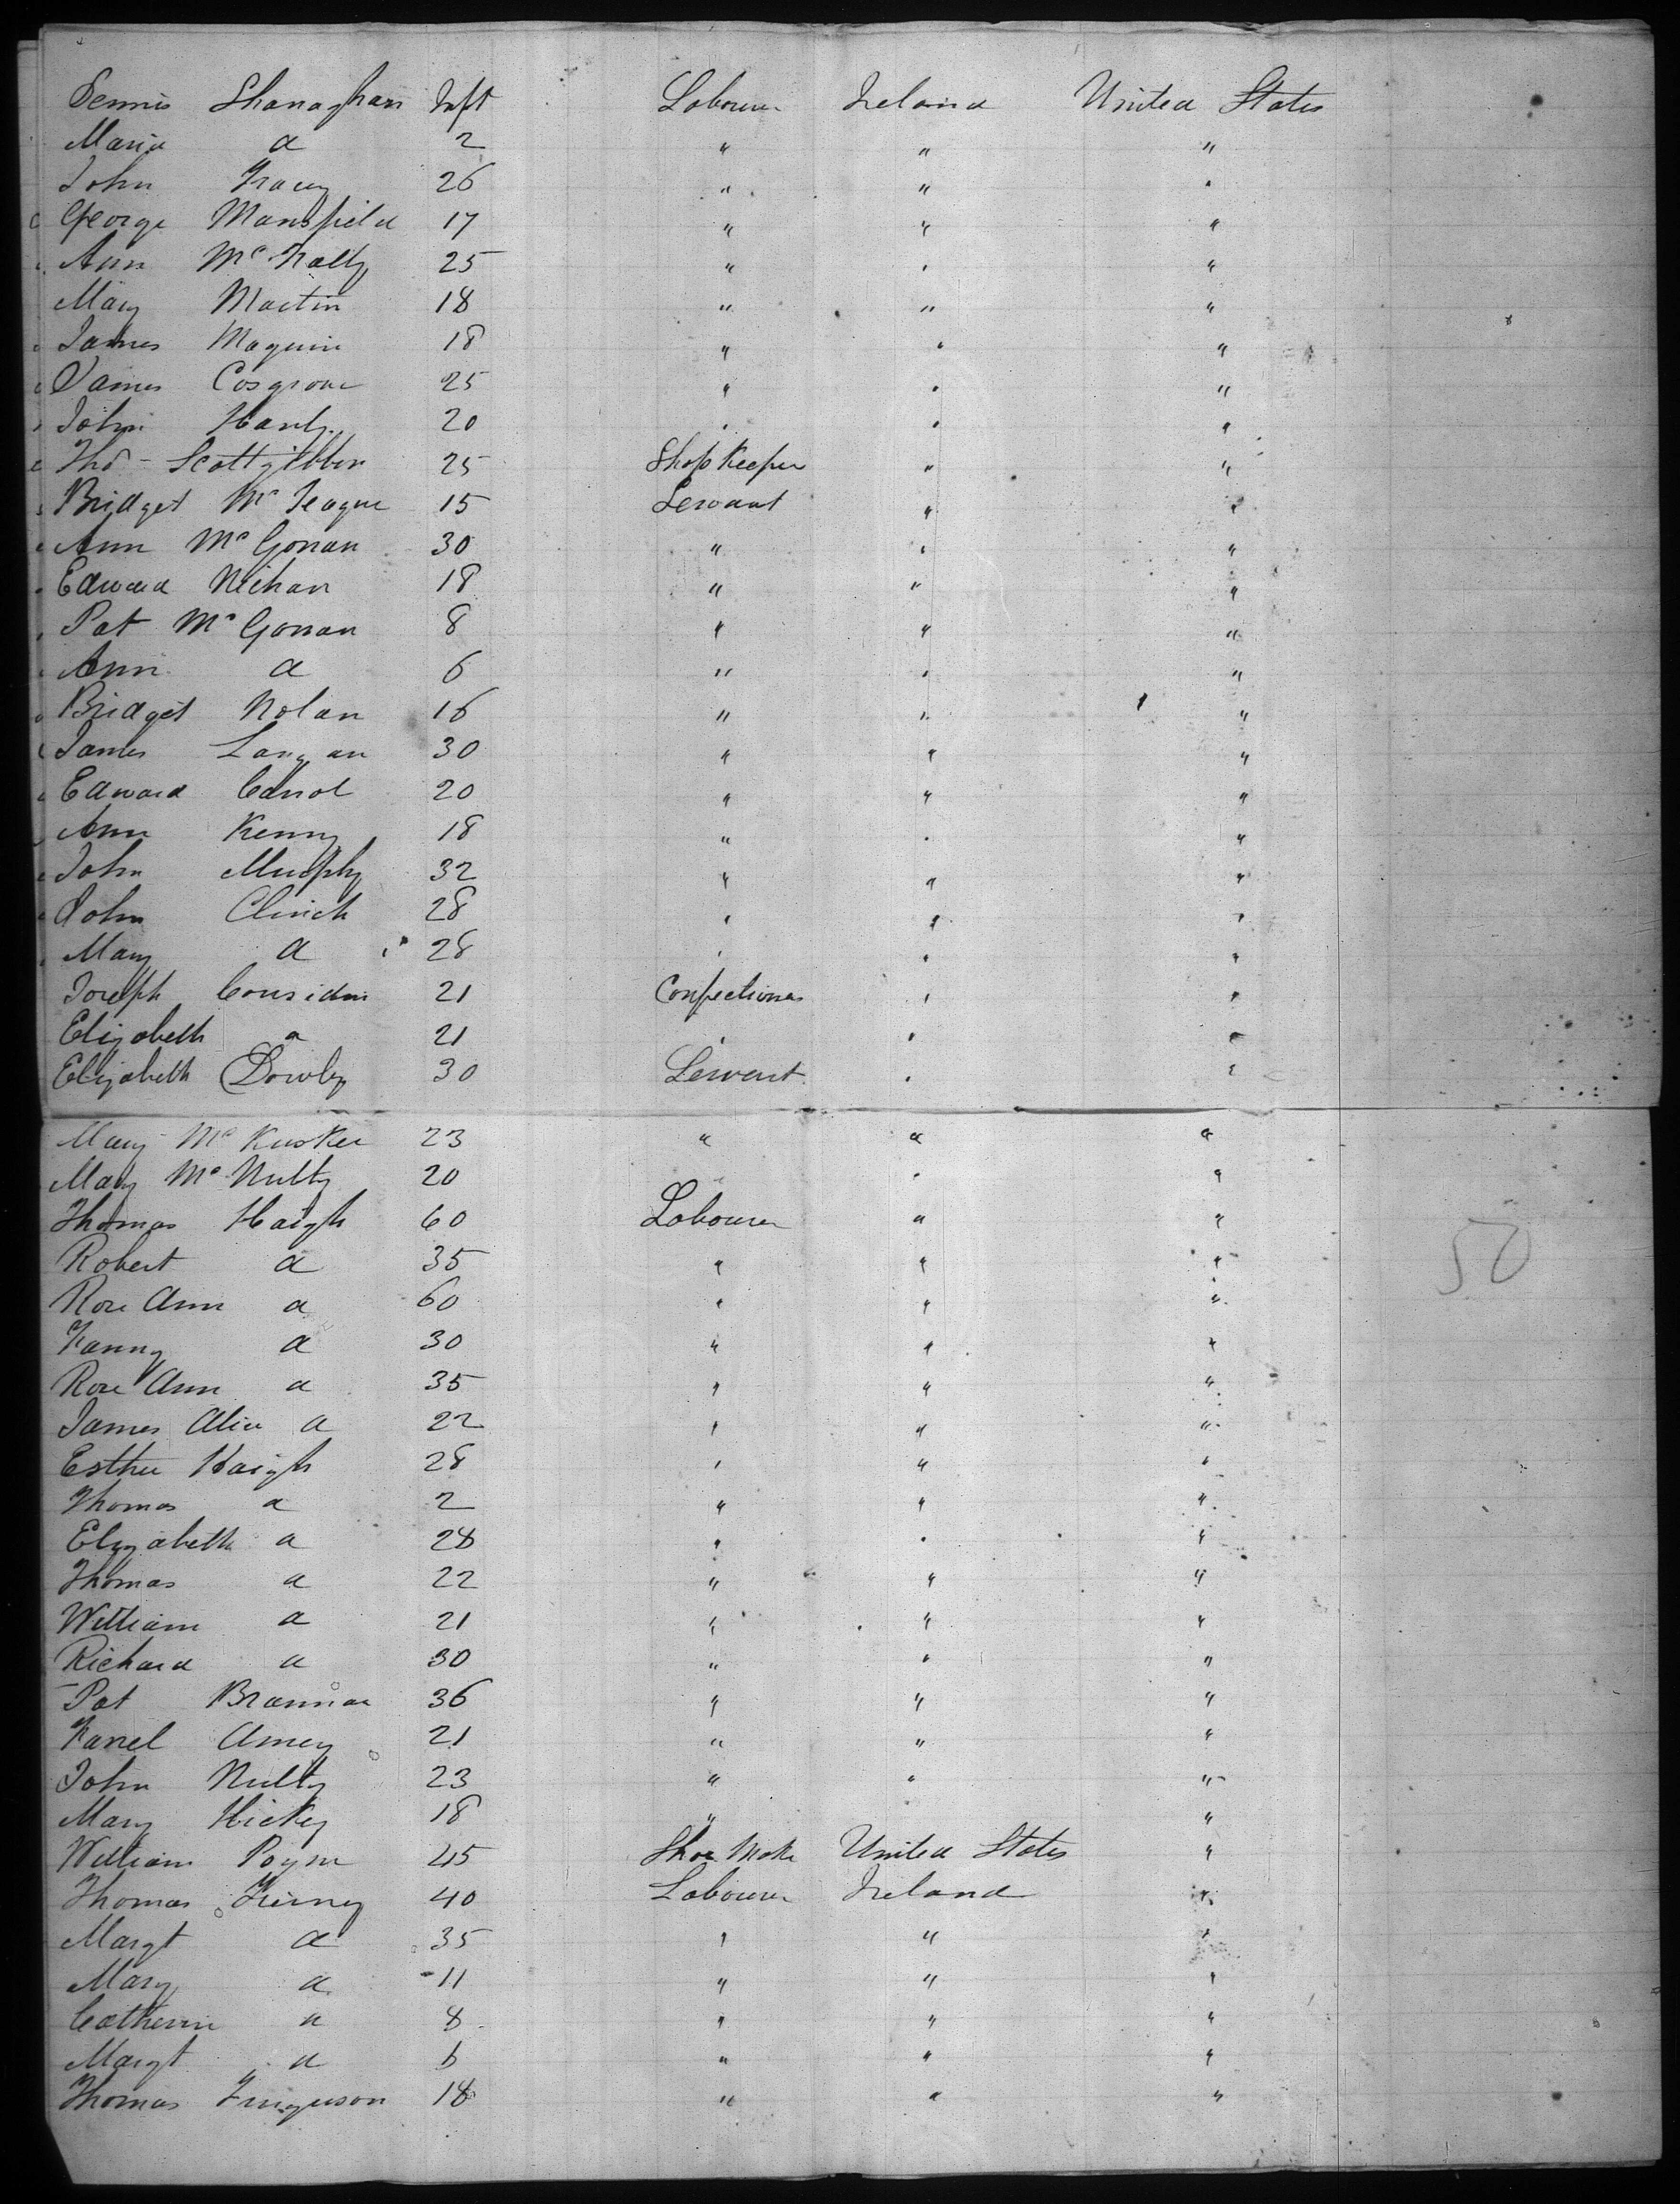 Dennis Shanaghan Inft Labourer Ireland United States
Maria a 2 " " "
John Tracey 26 " " "
George Mansfield 17 " " "
Ann Mc Nally 25 " " "
Mary Martin 18 " " "
James Maguire 18 " " "
James Cosgrove 25 " " "
John Hanly 20 " " "
Thos - 25 Shop Keeper " "
Bridget Mc Teague 15 Servant " "
Ann Mc Gonan 30 " " "
Edward 18 " " "
Pat Mc Gonan 8 " " "
Ann a 6 " " "
Bridget Nolan 16 " " "
James Langan 30 " " "
Edward Carrol 20 " " "
Ann Kenny 18 " " "
John Murphy 32 " " "
John Clinch 28 " " "
Mary a 28 " " "
Joseph Considin 21 Confectioner " "
Elizabeth a 21 " " "
Elizabeth Dowly 30 Servant " "
Mary Mc Kusker 23 " " "
Mary Mc Nulty 20 " "
Thomas Haigh 60 Labourer " "
Robert a 35 " " "
Rose Ann a 60 " " "
Fanny a 30 " " "
Rose Ann a 35 " " "
James Alice a 22 " " "
Esther Haigh 28 " " "
Thomas a 2 " " "
Elizabeth a 28 " " "
Thomas a 22 " " "
William a 21 " " "
Richard a 30 " " "
Pat Brannan 36 " " "
Farrel 21 " " "
John Nulty 23 " " "
Mary Hickey 18 " "
William Payne 45 Shoe Make United States "
Thomas Tierney 40 Labourer Ireland "
Margt a 35 " " "
Mary a 11 " " "
Catherine a 8 " " "
Margt a 6 " " "
Thomas Furguson 18 " " "
50